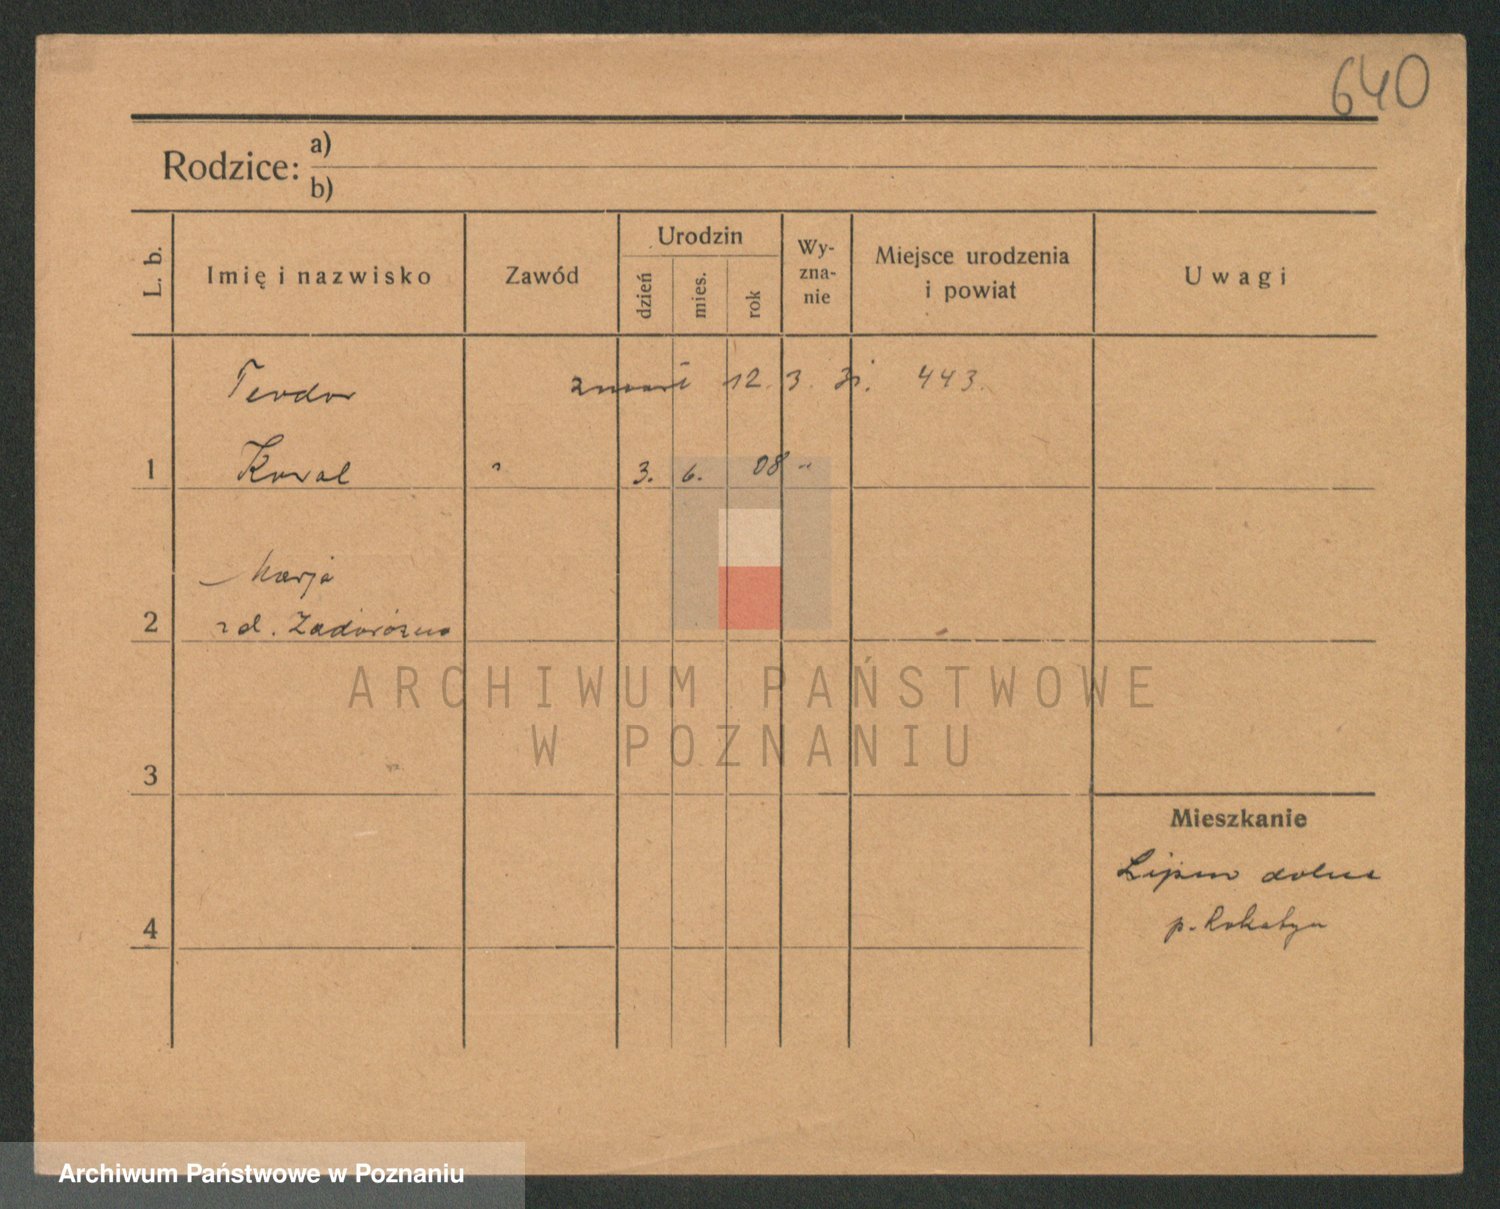 640
Rodzice: a)
b)
L. b. Imię i nazwisko Zawód Urodzin dzień mies. rok Wy-zna-nie Miejsce urodzenia i powiat Uwagi
Teodor zmarł 12. 3. 31. 443.
1 Kowal " 3. 6. 08 "
Marja
2 zd. Zadorożna
3
Mieszkanie
Lipno dolne
4 p. Rohatyn
ARCHIWUM PAŃSTWOWE
W POZNANIU
Archiwum Państwowe w Poznaniu